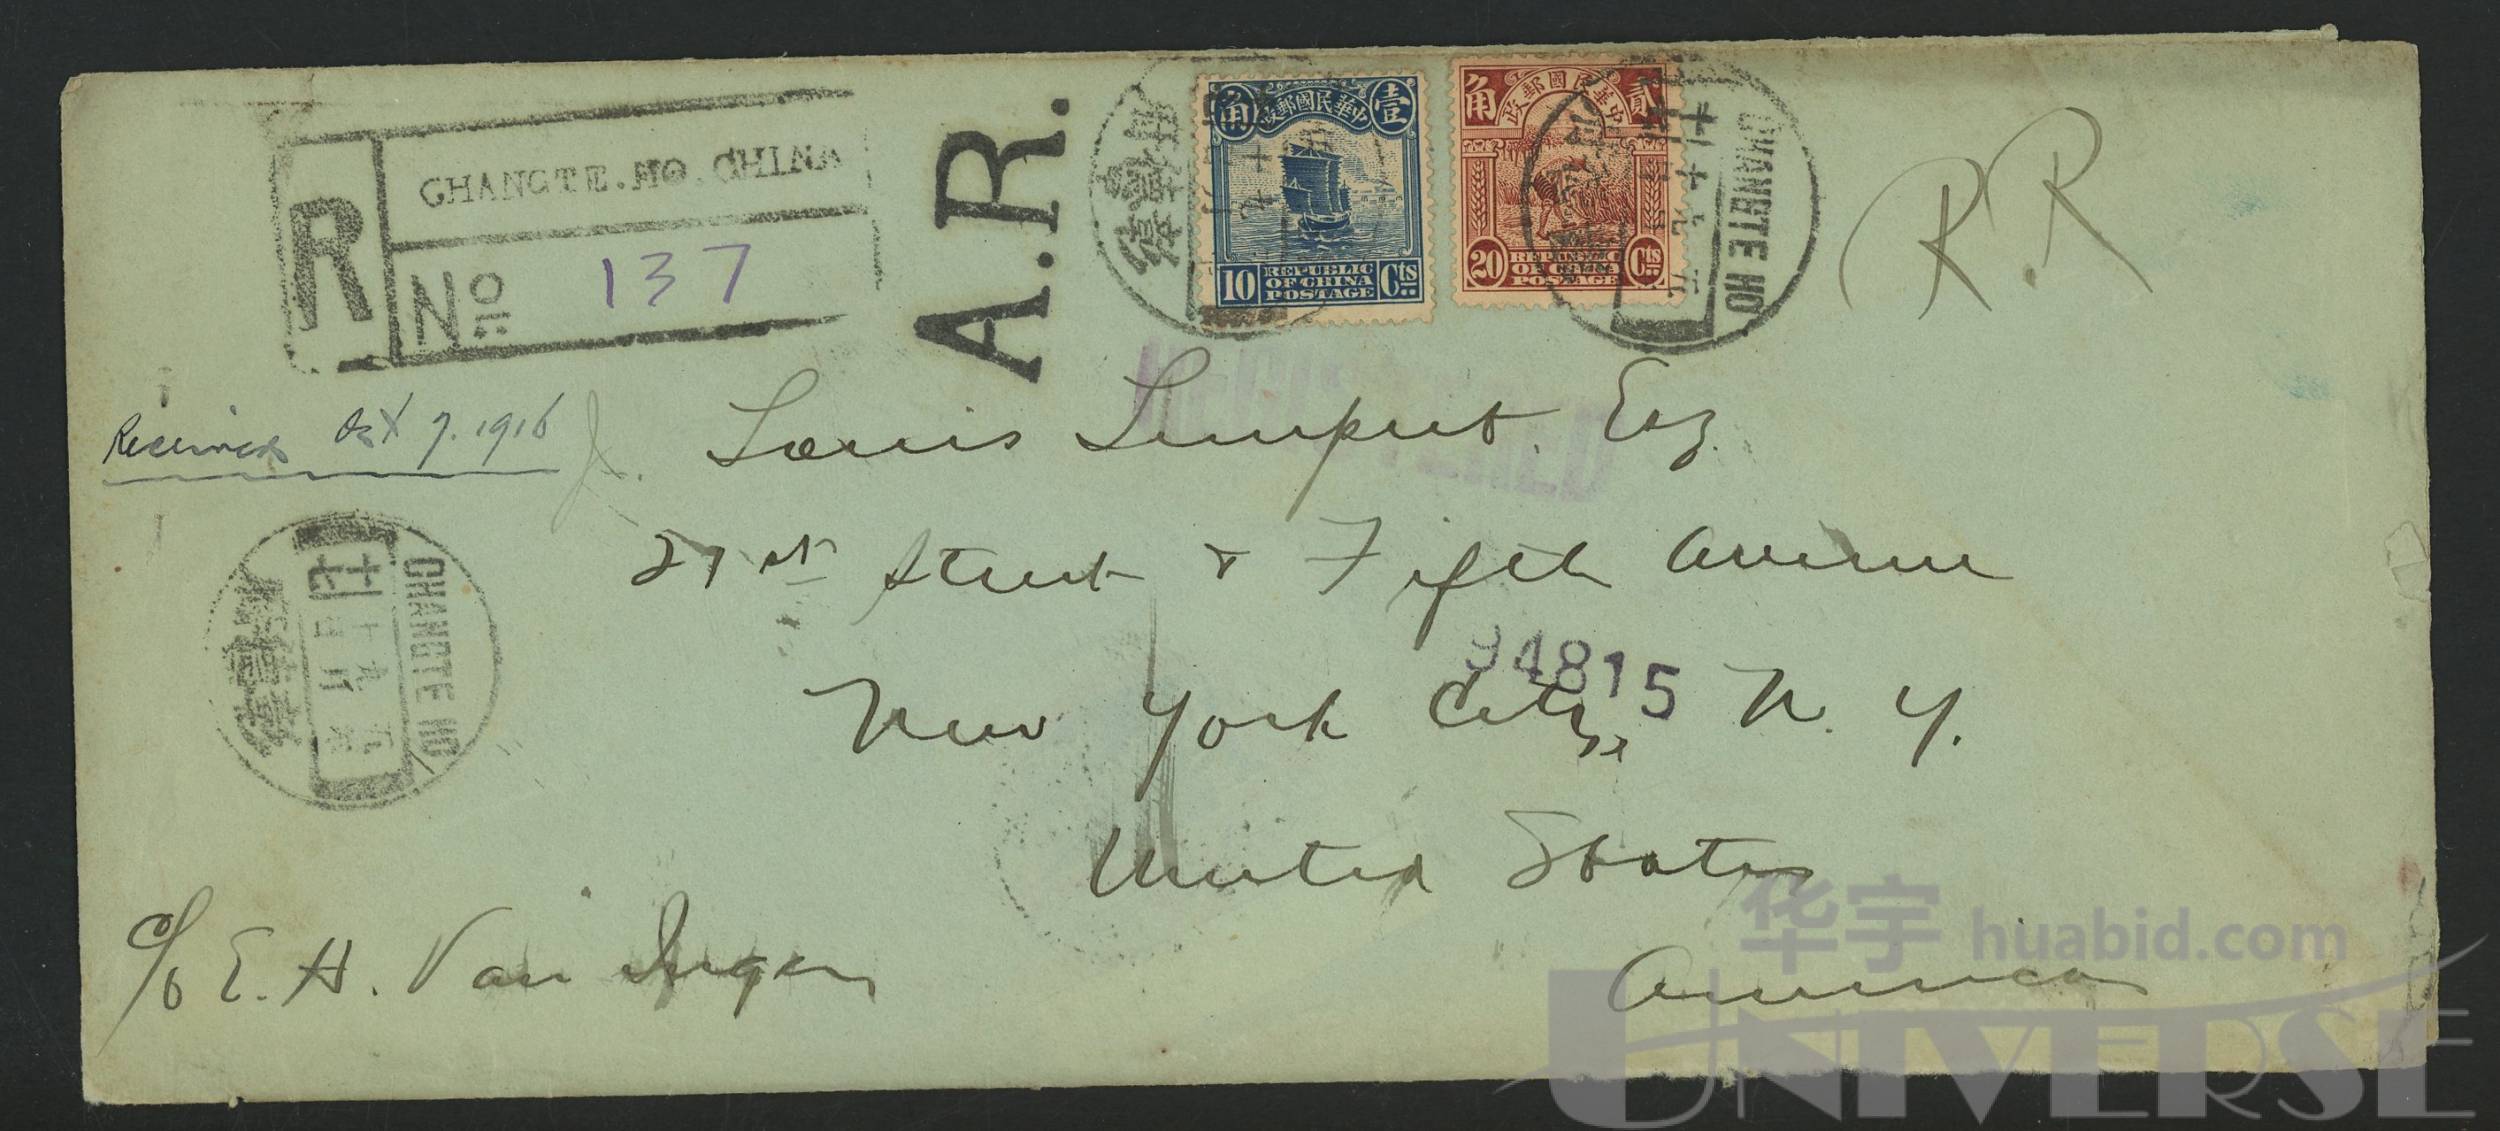 R
CHANGTE.HO.CHINA
No 137
A.R.
角 中華民國郵政 壹
10 REPUBLIC OF CHINA POSTAGE Cts
角 中華民國郵政 貳
20 REPUBLIC OF CHINA POSTAGE Cts
CHANGTE HO
R.R
REGISTERED
Received Oct 7. 1916
Louis Esq.
27 st Street & Fifth Avenue
94815
New York City N. Y.
United States
America
CHANGTE HO
c/o E. H. Van Ingen
华宇 huabid.com
UNIVERSE